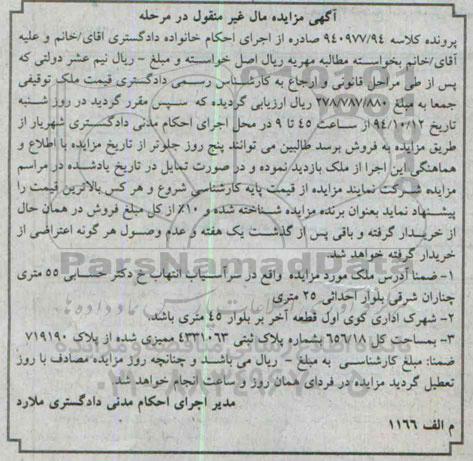 آگهی مزایده مال غیر منقول در مرحله
پرونده کلاسه ۹۴۰۹۷۷/۹۴ صادره از اجرای احکام خانواده دادگستری آقای/خانم و علیه
آقای/خانم بخواسته مطالبه مهریه ریال اصل خواسته و مبلغ - ریال نیم عشر دولتی که
پس از طی مراحل قانونی و ارجاع به کارشناس رسمی دادگستری قیمت ملک توقیفی
جمعا به مبلغ ۲۷۸/۷۸۷/۸۸۰ ریال ارزیابی گردیده که سپس مقرر گردید در روز شنبه
تاریخ ۹۴/۱۰/۱۲ از ساعت ۴۵ تا ۹ در محل اجرای احکام مدنی دادگستری شهریار از
طریق مزایده به فروش برسد طالبین می توانند پنج روز جلوتر از تاریخ مزایده با اطلاع و
هماهنگی این اجرا از ملک بازدید نموده و در صورت تمایل در تاریخ یادشده در مراسم
مزایده شرکت نمایند مزایده از قیمت پایه کارشناسی شروع و هر کس بالاترین قیمت را
پیشنهاد نماید بعنوان برنده مزایده شناخته شده و ۱۰٪ از کل مبلغ فروش در همان حال
از خریدار گرفته و باقی پس از گذشت یک هفته و عدم وصول هر گونه اعتراضی از
خریدار گرفته خواهد شد.
۱- ضمنا آدرس ملک مورد مزایده واقع در سرآسیاب انتهاب خ دکتر حسابی ۵۵ متری
چناران شرقی بلوار احداثی ۲۵ متری
۲- شهرک اداری کوی اول قطعه آخر بر بلوار ۴۵ متری باشد.
۳- بمساحت کل ۶۵۶/۱۸ بشماره پلاک ثبتی ۴۳۳۱۰۶۳ ممیزی شده از پلاک ۷۱۹۱۹۰
ضمنا: مبلغ کارشناسی به مبلغ - ریال می باشد و چنانچه روز مزایده مصادف با روز
تعطیل گردید مزایده در فردای همان روز و ساعت انجام خواهد شد
مدیر اجرای احکام مدنی دادگستری ملارد
م الف ۱۱۶۶
ParsNamadData